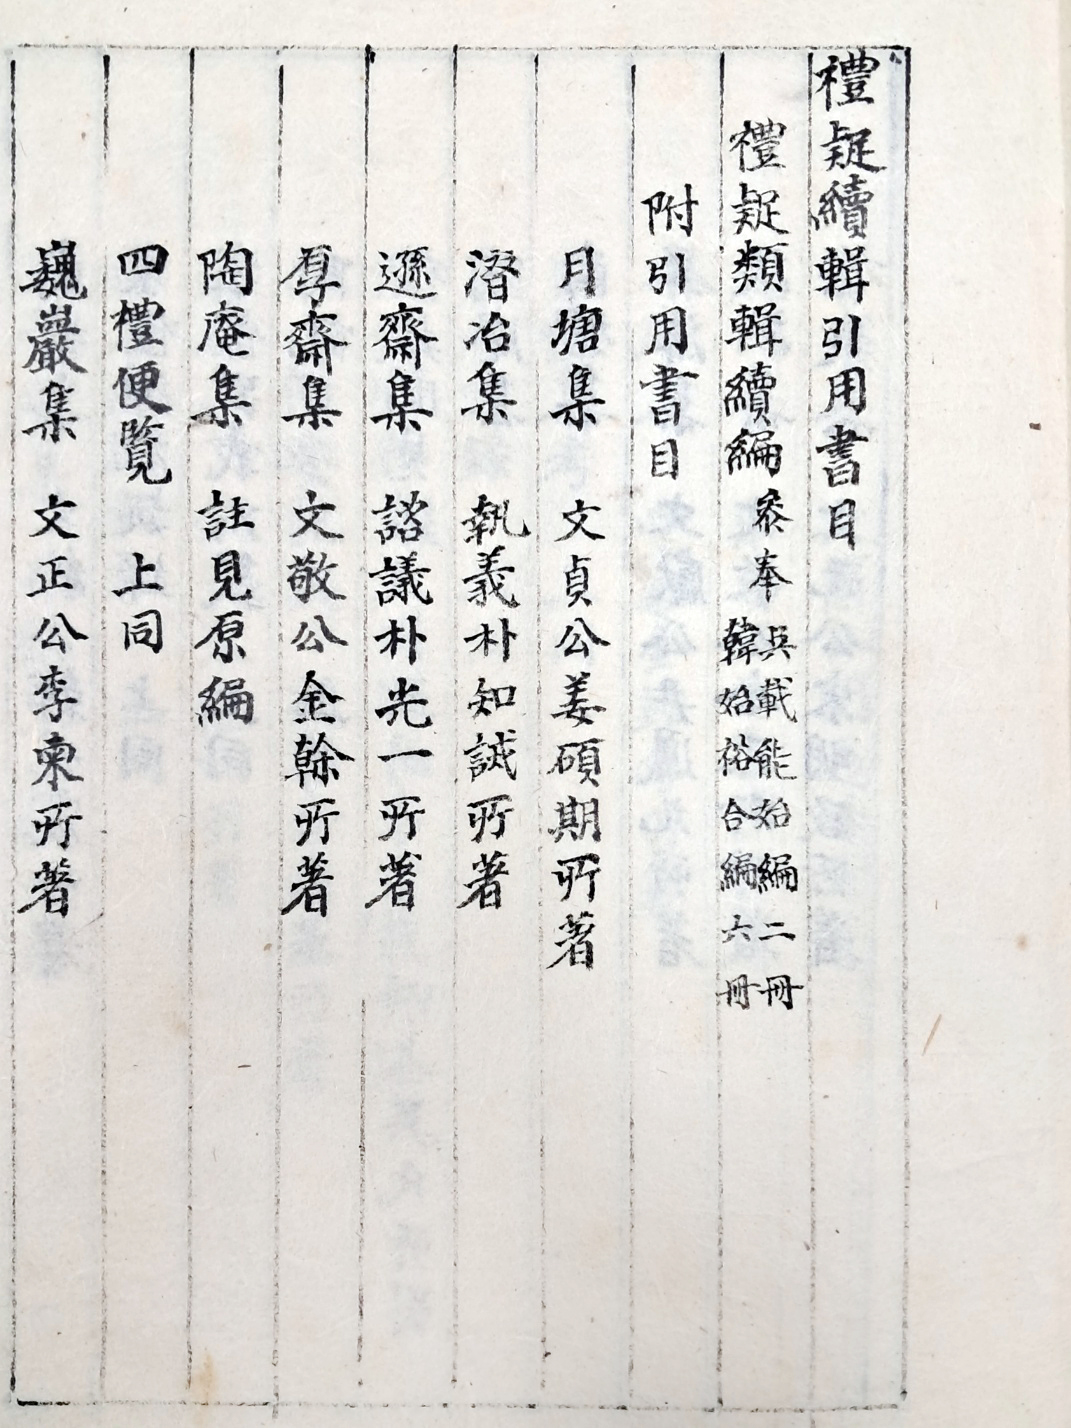 禮疑續輯引用書目
禮疑類輯續編 叅奉 吳載能始編二冊 韓始裕合編六冊
附引用書目
月塘集 文貞公姜碩期所著
潛冶集 執義朴知誡所著
遜齋集 諮議朴光一所著
厚齋集 文敬公金榦所著
陶庵集 註見原編
四禮便覽 上同
巍巖集 文正公李柬所著